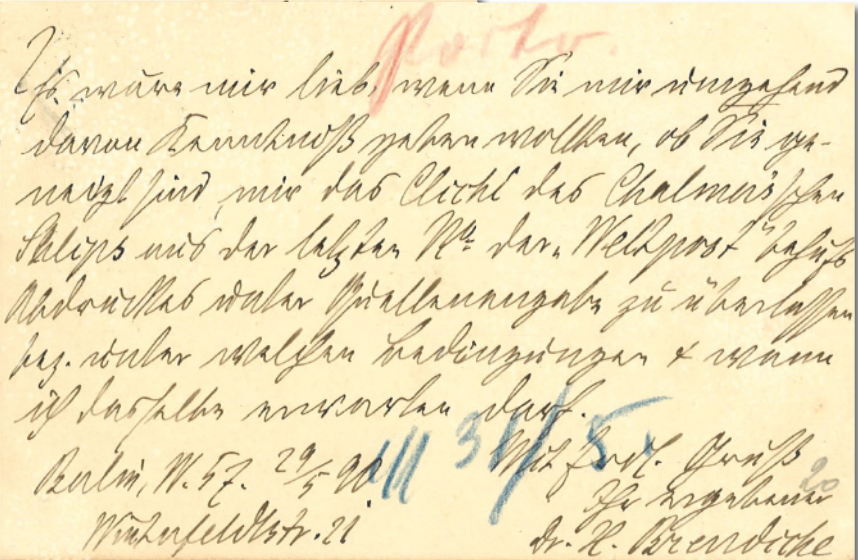 Porto.
Es wäre mir lieb, wenn Sie mir umgehend
davon Kenntniß geben wollten, ob Sie ge-
neigt sind, mir das Cliché des Chalmers'schen
Slips aus der letzten No. der "Weltpost" behufs
Abdruckes unter Quellenangabe zu überlassen
bez. unter welchen Bedingungen & wann
ich dasselbe erwarten darf.
31/5.
Mit frdl. Gruß
Berlin, W. 57. 29/5 90
Ihr ergebener
20
Winterfeldtstr. 21
Dr. H. Brendicke